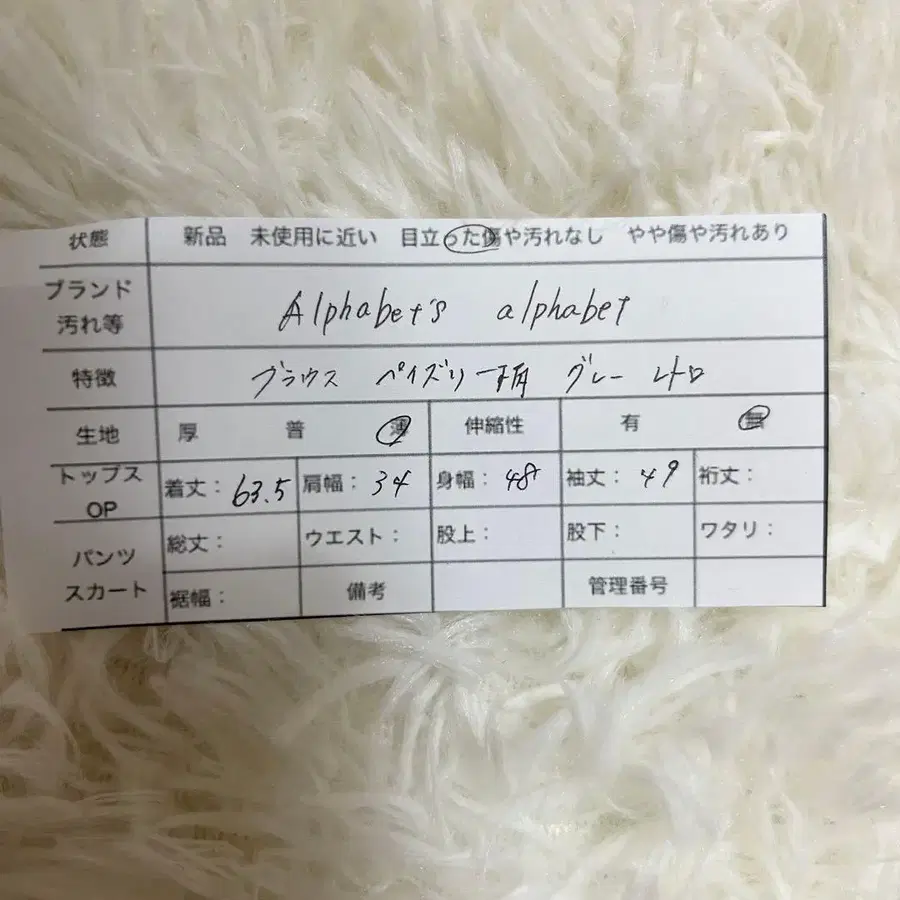 状態 新品 未使用に近い 目立った傷や汚れなし やや傷や汚れあり
ブランド
汚れ等
Alphabet's alphabet
特徴 ブラウス ペイズリー柄 グレー レトロ
生地 厚 普 薄 伸縮性 有 無
トップス
OP
着丈： 63.5 肩幅： 34 身幅： 48 袖丈： 49 裄丈：
パンツ
スカート
総丈： ウエスト： 股上： 股下： ワタリ：
裾幅： 備考 管理番号